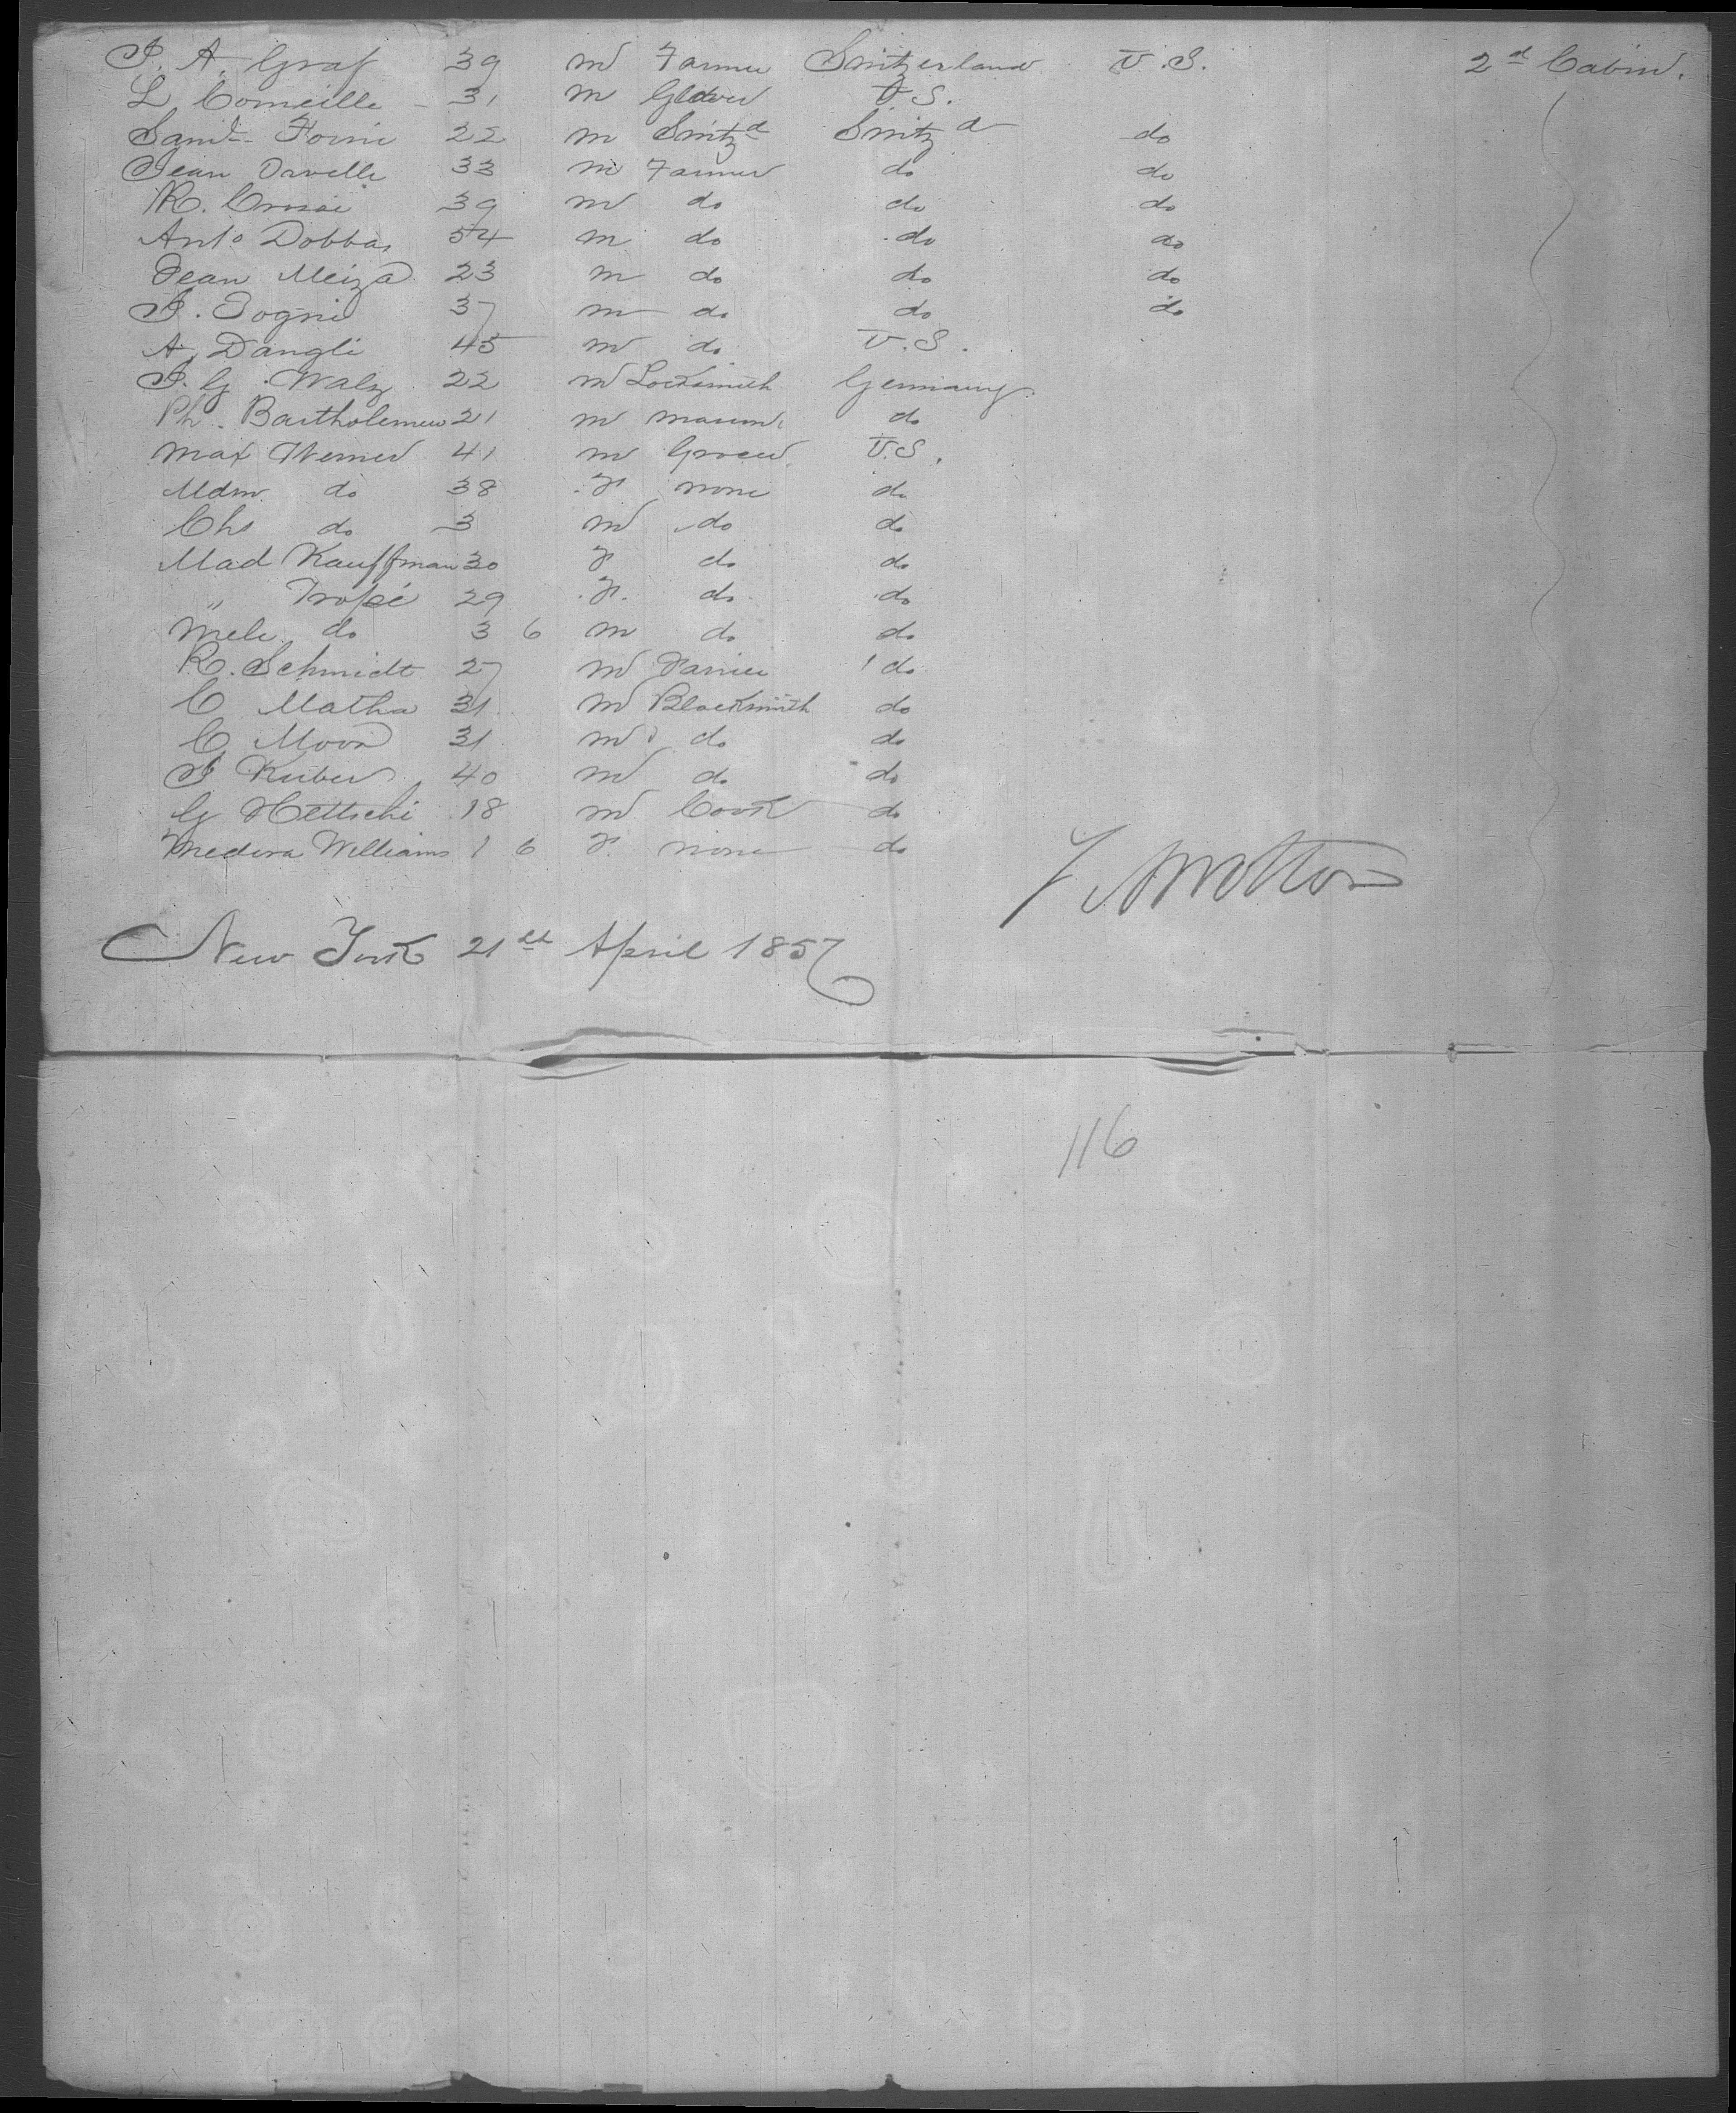 J. A. Graf 39 m Farmer Switzerland U.S. 2d Cabin.
L Corneille 31 m Glover U.S.
Saml Forni 22 m Switzd Switzd do
Jean Orvelle 33 m Farmer do do
R. 39 m do do do
Anto Dobbas 54 m do do do
Jean Meiza 23 m do do do
J. Togni 37 m do do do
A. Dangli 45 m do U.S.
J. G. Walz 22 m Locksmith Germany
Ph. Bartholemew 21 m mason do
Max Werner 41 m Grocer U.S.
Mdm do 38 F none do
Chs do 3 m do do
Mad Kauffman 30 F do do
" Tropé 29 F. do do
Mele do 3 6 m do do
R. Schmidt 27 m do
C Matha 31 m Blacksmith do
C Moon 31 m do do
J Kuber 40 m do do
G Hettschi 18 m Cook do
Medora Williams 1 6 F. none do
J A Wotton
New York 21st April 1857
116